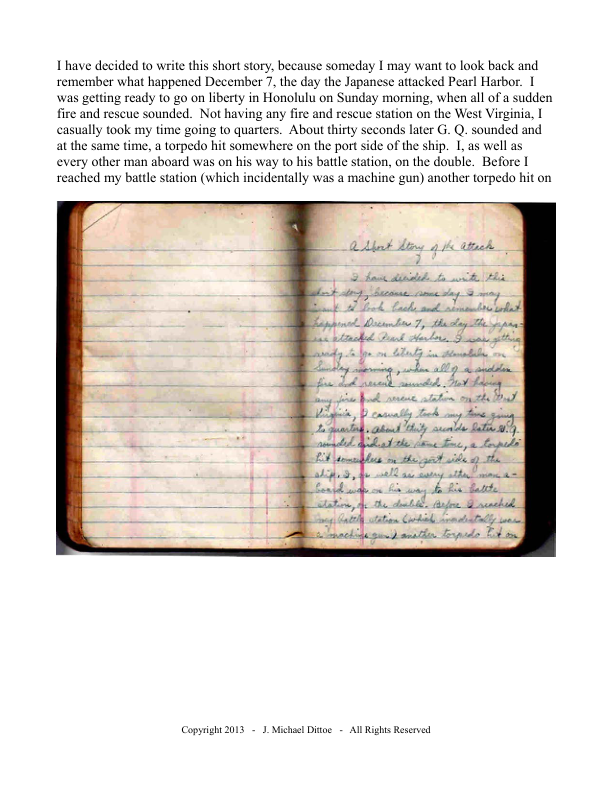 I have decided to write this short story, because someday I may want to look back and
remember what happened December 7, the day the Japanese attacked Pearl Harbor.  I
was getting ready to go on liberty in Honolulu on Sunday morning, when all of a sudden
fire and rescue sounded.  Not having any fire and rescue station on the West Virginia, I
casually took my time going to quarters.  About thirty seconds later G. Q. sounded and
at the same time, a torpedo hit somewhere on the port side of the ship.  I, as well as
every other man aboard was on his way to his battle station, on the double.  Before I
reached my battle station (which incidentally was a machine gun) another torpedo hit on
A Short Story of the Attack
I have decided to write this
short story, because some day I may
want to look back and remember what
happened December 7, the day the Japan-
ese attacked Pearl Harbor. I was getting
ready to go on liberty in Honolulu on
Sunday morning, when all of a sudden
fire and rescue sounded. Not having
any fire and rescue station on the West
Virginia, I casually took my time going
to quarters. About thirty seconds later G.Q.
sounded and at the same time, a torpedo
hit somewhere on the port side of the
ship. I, as well as every other man a-
board was on his way to his battle
station, on the double. Before I reached
my battle station (which incidentally was
a machine gun) another torpedo hit on
Copyright 2013   -   J. Michael Dittoe   -   All Rights Reserved